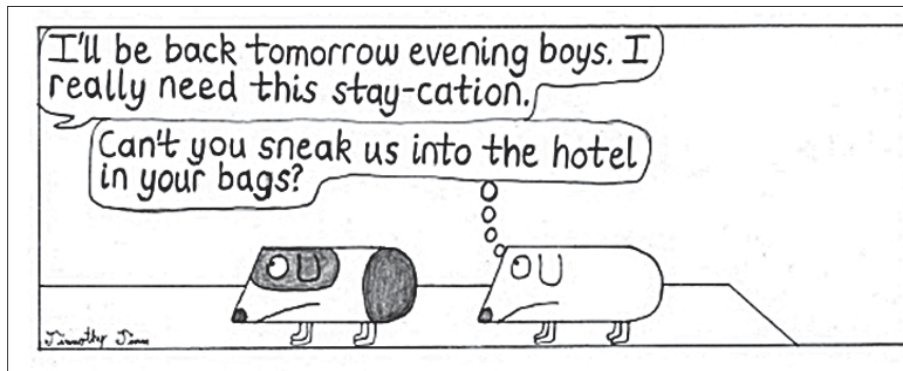 I'll be back tomorrow evening boys. I
really need this stay-cation.
Can't you sneak us into the hotel
in your bags?
Timothy